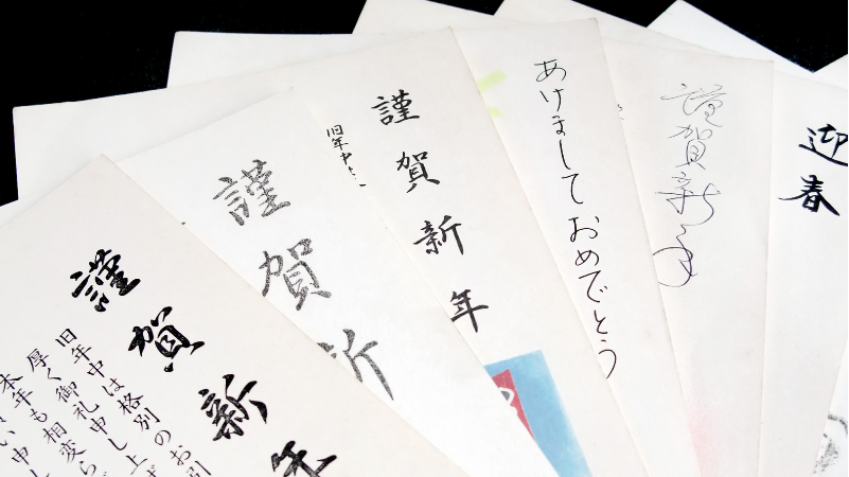 謹賀新年
旧年中は格別のお引
厚く御礼申し上げ
本年も相変ら
い申し
謹賀新
謹賀新年
旧年中
あけましておめでとう
謹賀新年
迎春